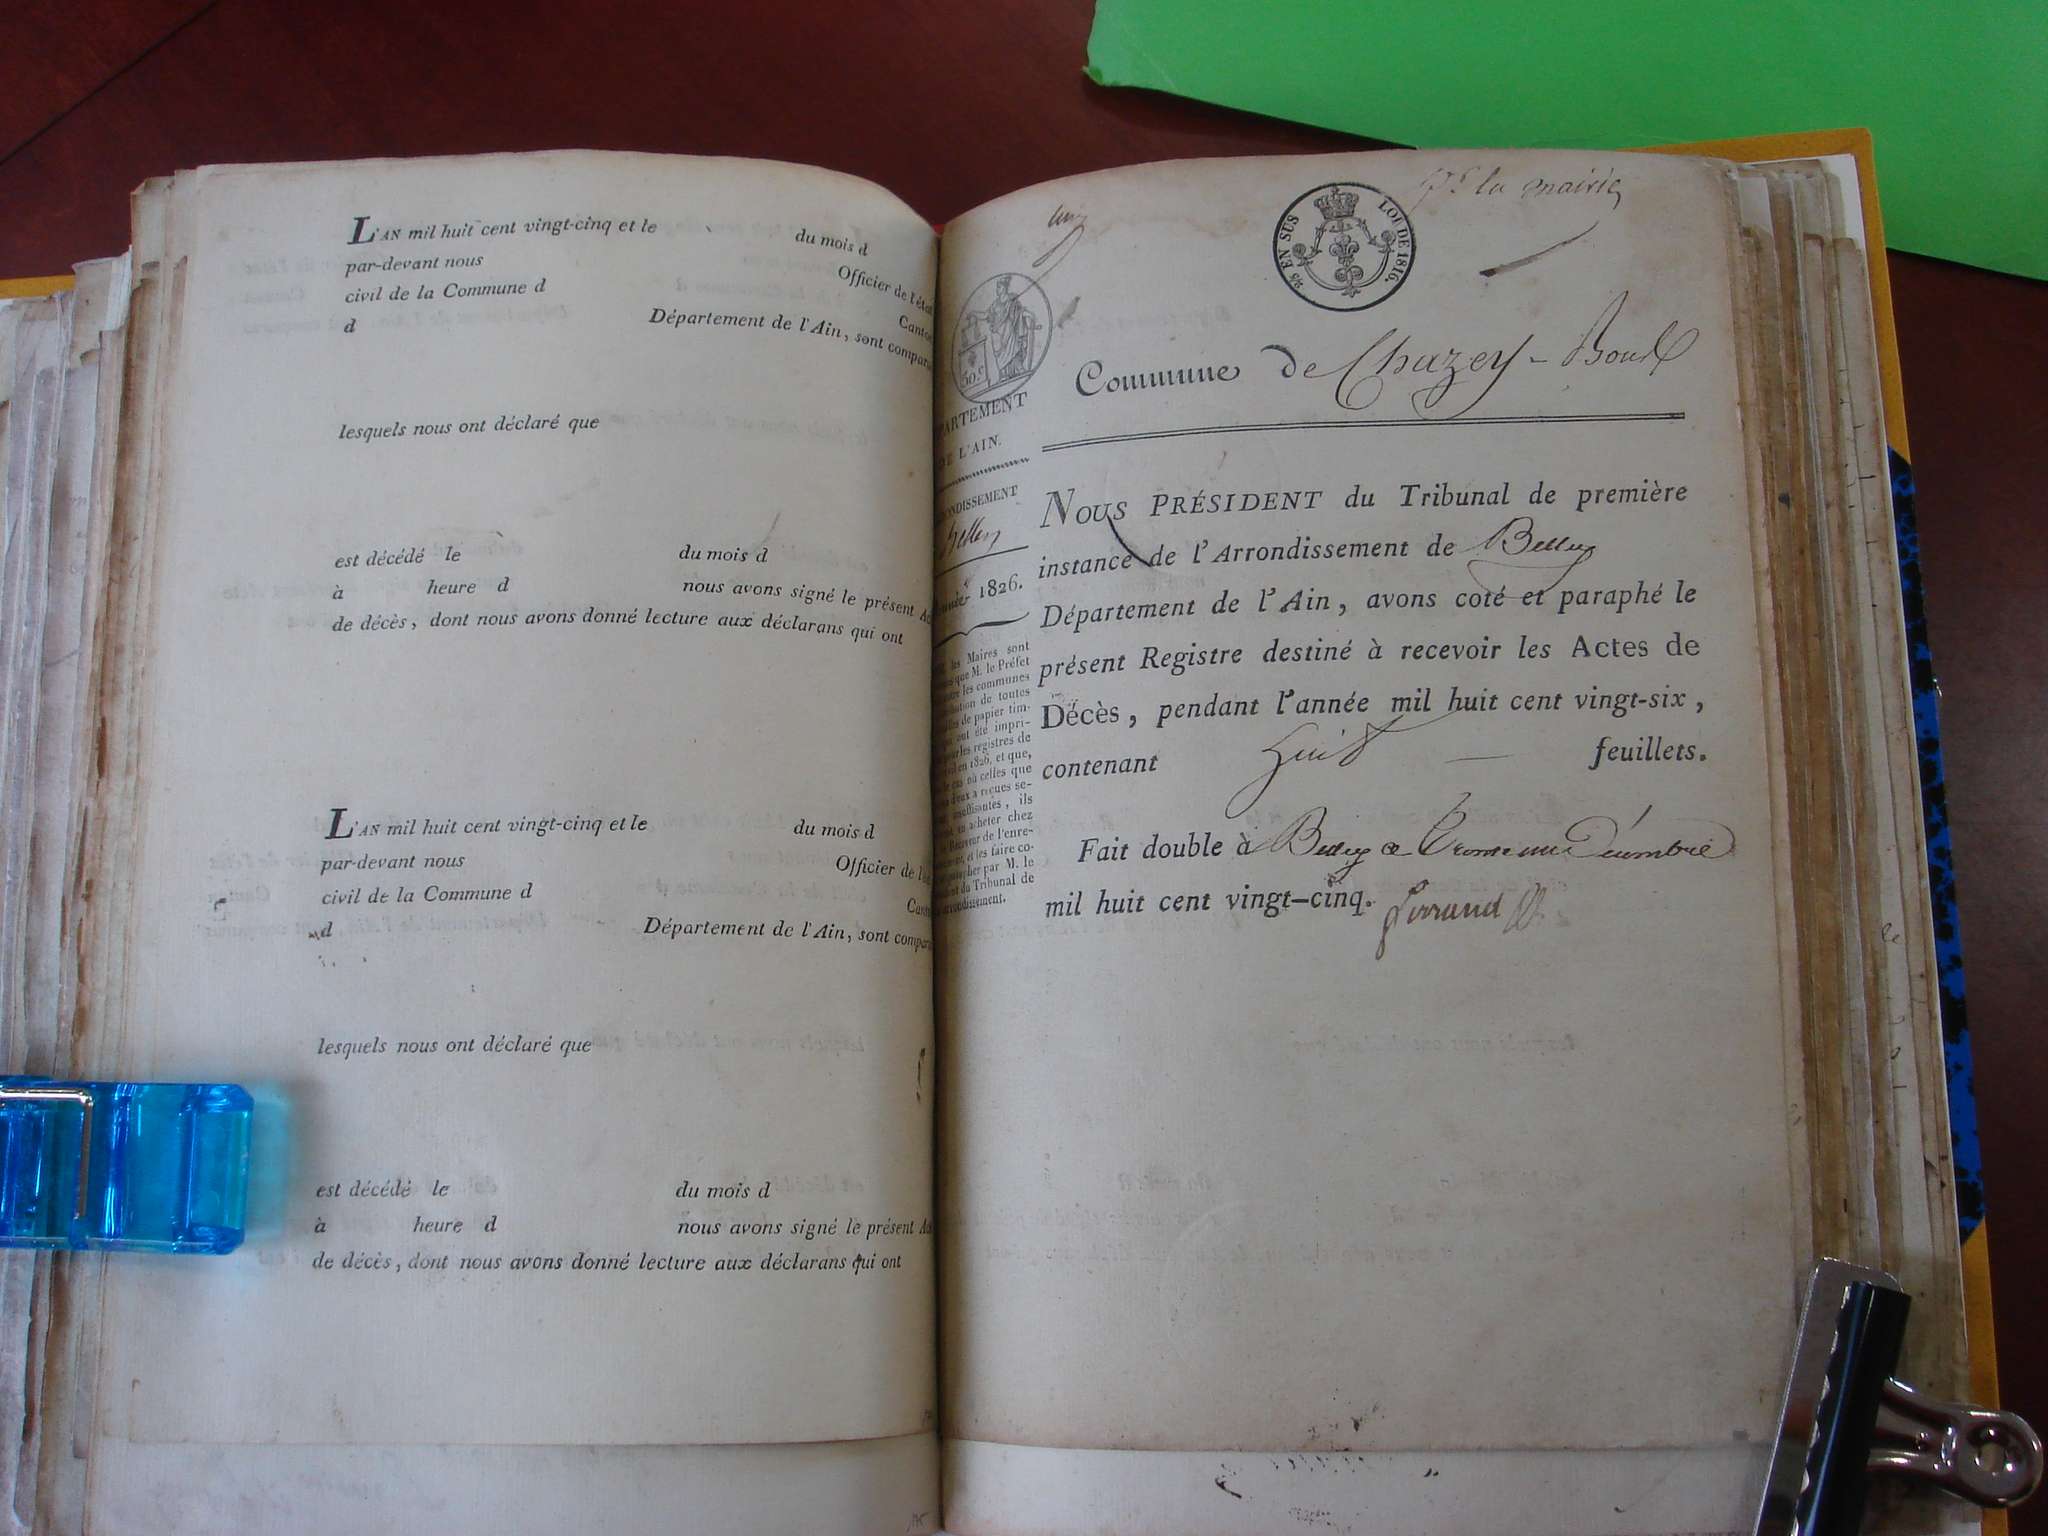 L'AN mil huit cent vingt-cinq et le du mois d
par-devant nous Officier de l'état
civil de la Commune d Canton
d Département de l'Ain, sont comparu
lesquels nous ont déclaré que
est décédé le du mois d
à heure d nous avons signé le présent Ac
de décès, dont nous avons donné lecture aux déclarans qui ont
L'AN mil huit cent vingt-cinq et le du mois d
par-devant nous Officier de l'é
civil de la Commune d Cant
d Département de l'Ain, sont compar
lesquels nous ont déclaré que
est décédé le du mois d
à heure d nous avons signé le présent Ac
de décès, dont nous avons donné lecture aux déclarans qui ont
la mairie
2/5 EN SUS LOI DE 1816.
50 c
PARTEMENT
DE L'AIN.
ONDISSEMENT
Belley
1826.
les Maires sont
que M. le Préfet
les communes
de toutes
de papier tim-
ont été impri-
les registres de
en 1826, et que,
cas où celles que
d'eux a reçues se-
insuffisantes, ils
en acheter chez
Receveur de l'enre-
et les faire co-
par M. le
du Tribunal de
arrondissement.
Commune de Chazey-Bons
NOUS PRÉSIDENT du Tribunal de première
instance de l'Arrondissement de Belley
Département de l'Ain, avons coté et paraphé le
présent Registre destiné à recevoir les Actes de
Décès, pendant l'année mil huit cent vingt-six,
contenant huit feuillets.
Fait double à Belley ce trente un Décembre
mil huit cent vingt-cinq.